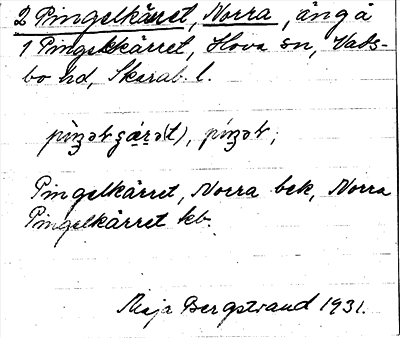 2 Pingelkärret, Norra, äng å
1 Pingelkärret, Hova sn, Vads-
bo hd, Skarab. l.
Pingelkärret, Norra bek, Norra
Pingelkärret kb.
Maja Bergstrand 1931.